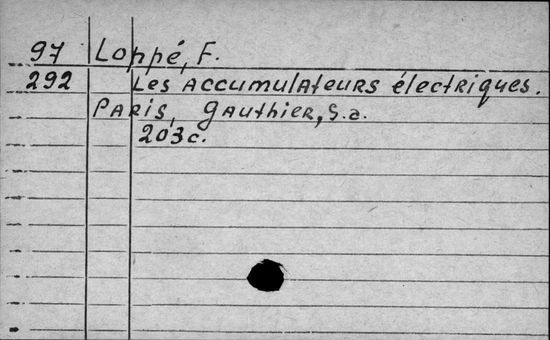 97 Loppé, F.
292 Les accumulateurs électriques.
Paris, Gauthier, S.a.
203c.